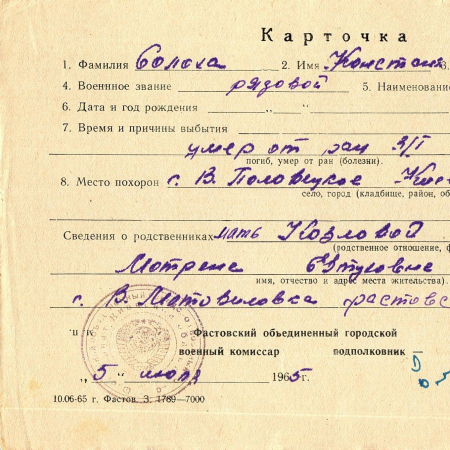 Карточка
1. Фамилия Солоха 2. Имя Констан 3.
4. Воен­ное звание рядовой 5. Наименовани
6. Дата и год рождения „ “
7. Время и причины выбытия
умер от ран 3/I
погиб, умер от ран (болезни).
8. Место похорон с. В. Половецкое Кие
село, город (кладбище, район, об
Сведения о родственниках мать Козловой
(родственное отношение, ф
Мотрене
имя, отчество и адрес места жительства).
с. В. Мотовиловка фастовс
Фастовский объединенный городской
военный комиссар подполковник —
„ 5 “ июля 1965г.
10.06-65 г. Фастов. З. 1789—7000